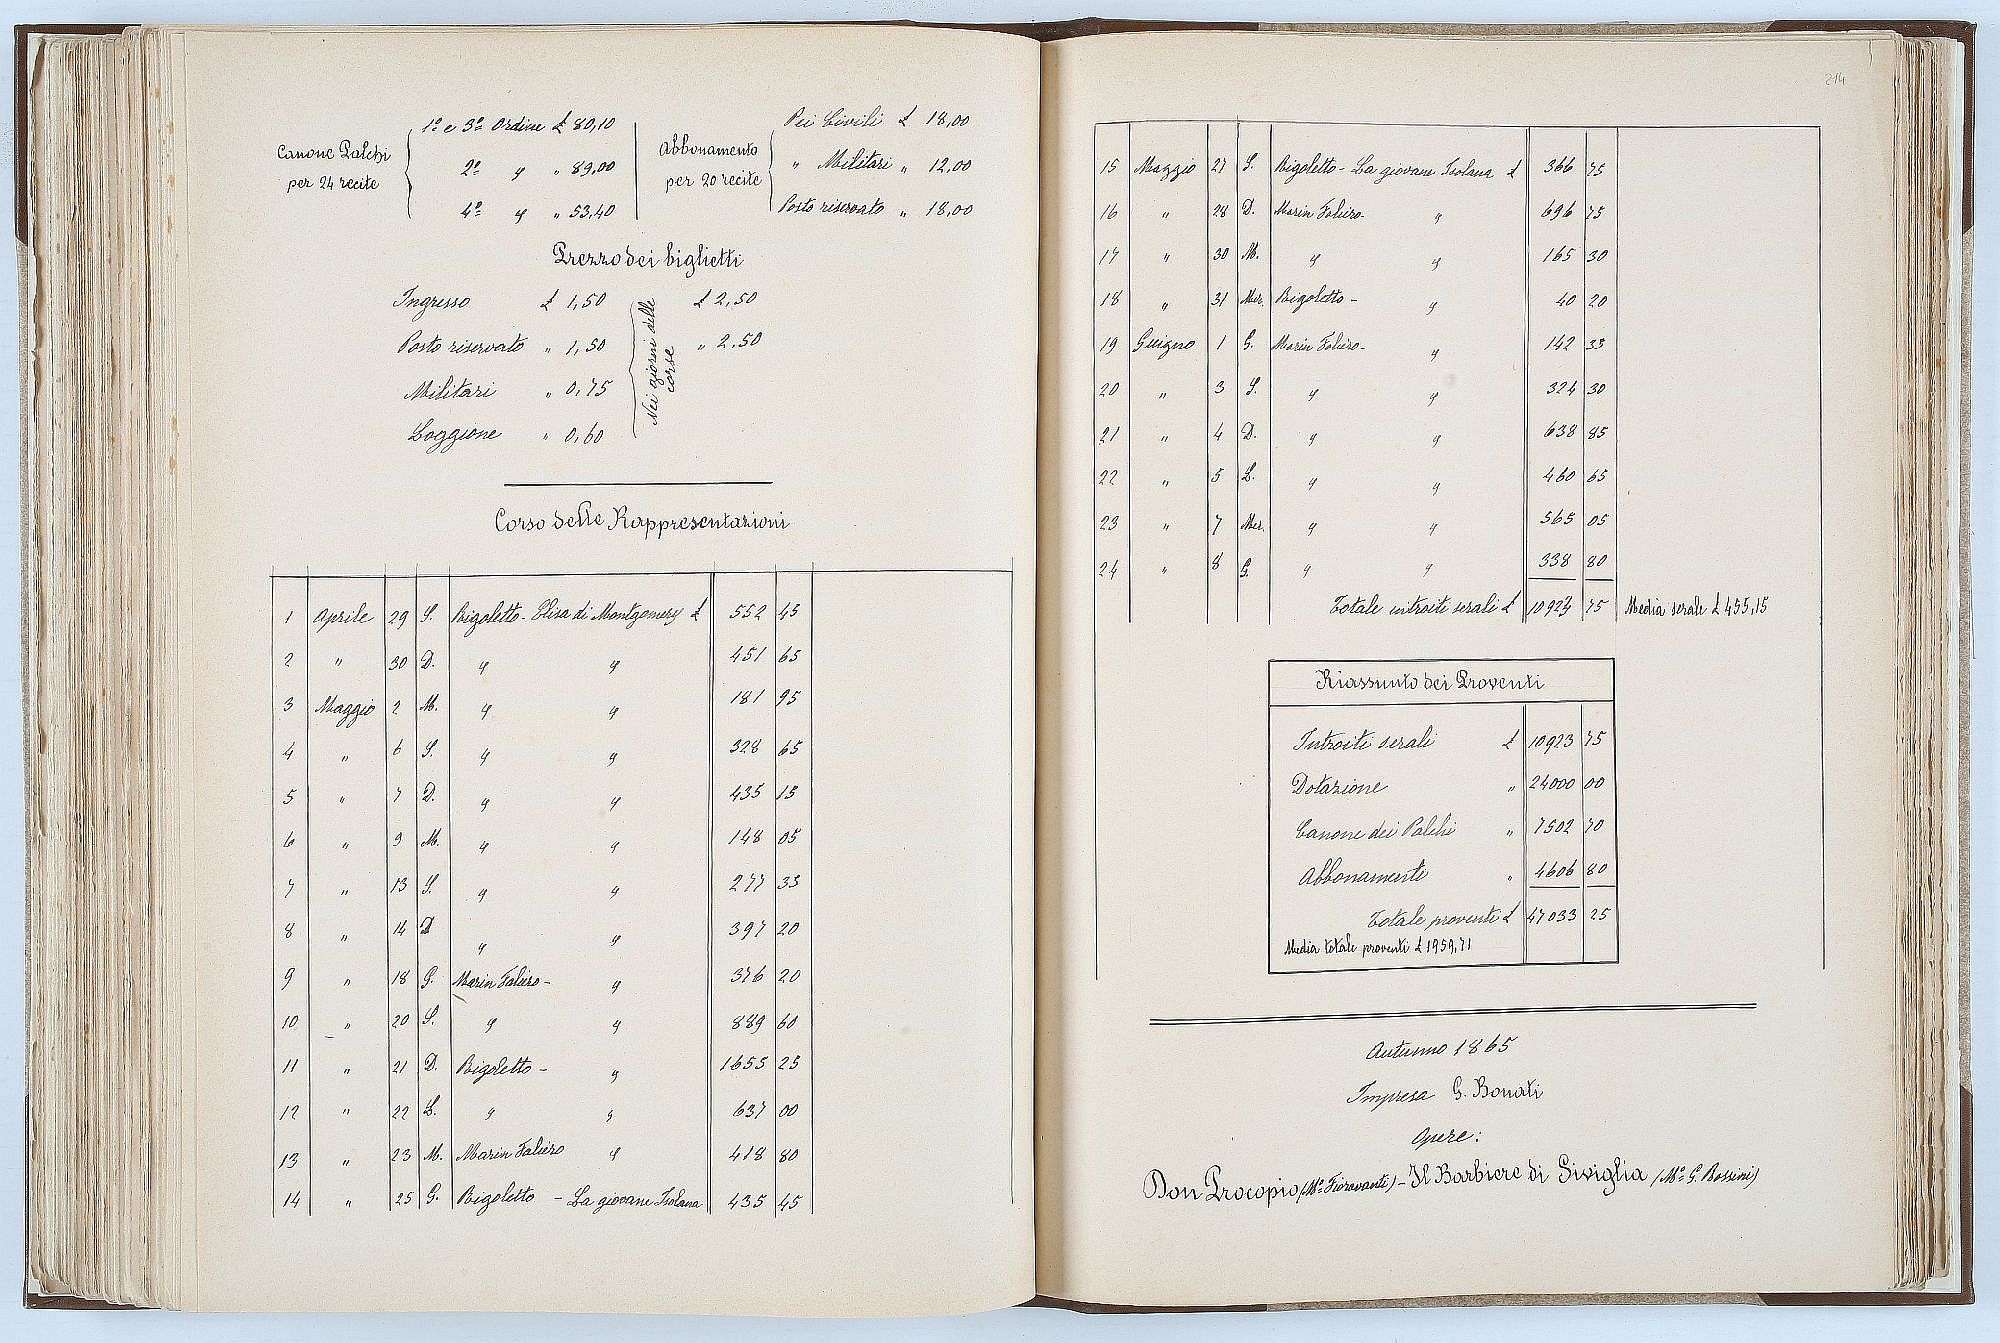 Canone Palchi per 24 recite
1º e 3º Ordine £ 80,10
2º " " 89,00
4º " " 53,40
Abbonamento per 20 recite
Pei Civili £ 18,00
" Militari " 12,00
Posto riservato " 18,00
Prezzo dei biglietti
Ingresso £ 1,50 £ 2,50
Posto riservato " 1,50 " 2.50
Militari " 0,75
Loggione " 0,60
Nei giorni delle corse
Corso delle Rappresentazioni
1 Aprile 29 S. Rigoletto - Elisa di Montgomery £ 552 45
2 " 30 D. " " 451 65
3 Maggio 2 M. " " 181 95
4 " 6 S. " " 328 65
5 " 7 D. " " 435 15
6 " 9 M. " " 148 05
7 " 13 S. " " 277 33
8 " 14 D " " 397 20
9 " 18 G. Marin Faliero - " 376 20
10 " 20 S. " " 889 60
11 " 21 D. Rigoletto - " 1655 25
12 " 22 L. " " 637 00
13 " 23 M. Marin Faliero " 418 80
14 " 25 G. Rigoletto - La giovane Isolana 435 45
214
15 Maggio 27 S. Rigoletto - La giovane Isolana £ 366 75
16 " 28 D. Marin Faliero - " 696 75
17 " 30 M. " " 165 30
18 " 31 Mer. Rigoletto - " 40 20
19 Guigno 1 G. Marin Faliero - " 142 33
20 " 3 S. " " 324 30
21 " 4 D. " " 638 85
22 " 5 L. " " 460 65
23 " 7 Mer. " " 565 05
24 " 8 G. " " 338 80
Totale introiti serali £ 10923 75 Media serale £ 455,15
Riassunto dei Proventi
Introiti serali £ 10923 75
Dotazione " 24000 00
Canone dei Palchi " 7502 70
Abbonamenti " 4606 80
Totale proventi £ 47033 25
Media totale proventi £ 1959,71
Autunno 1865
Impresa G. Bonati
Opere:
Don Procopio (Mº Fioravanti) - Il Barbiere di Siviglia (Mº G. Rossini)